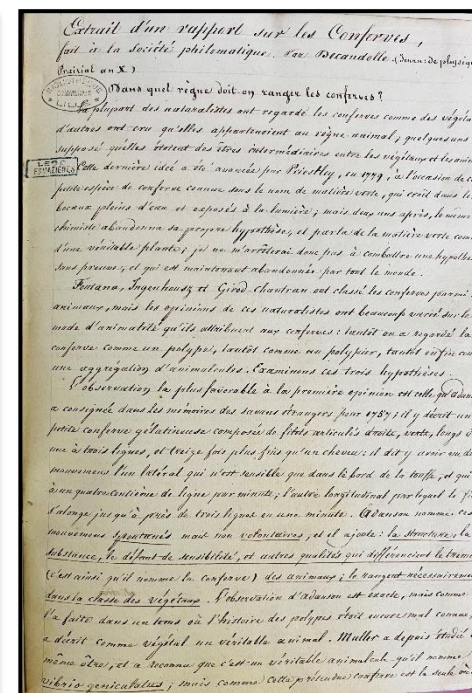 Extrait d'un rapport sur les Conferves,
fait à la Société philomatique. Par Decandolle (Journ: de physique
Prairial an X)
Dans quel règne doit-on ranger les conferves?
BIBLIOTHEQUE
LILLE
La plupart des naturalistes ont regardé les conferves comme des végéta
d'autres ont cru qu'elles appartenoient au règne animal; quelques uns
supposé qu'elles étoient des êtres intermédiaires entre les végétaux et les anim
LEGS
ESMAZIÈRES
Cette dernière idée a été avancée par Priestley, en 1779, à l'occasion de c
petite espèce de conferve connue sous le nom de matière verte, qui croît dans le
bocaux pleins d'eau et exposés à la lumière; mais deux ans après, le même
chimiste abandonna sa propre hypothèse, et parla de la matière verte com
d'une véritable plante; je ne m'arrêterai donc pas à combattre une hypothe
sans preuves, et qui est maintenant abandonnée par tout le monde.
Fontana, Ingenhousz et Girod-Chantran ont classé les conferves parmi
animaux, mais les opinions de ces naturalistes ont beaucoup varié sur le
mode d'animalité qu'ils attribuent aux conferves: tantôt on a regardé la
conferve comme un polype, tantôt comme un polypier, tantôt enfin com
une aggrégation d'animalcules. Examinons ces trois hypothèses.
L'observation la plus favorable à la première opinion est celle qu'adan
a consignée dans les mémoires des savans étrangers pour 1757; il y décrit un
petite conferve gélatineuse composée de filets articulés droits, verts, longs d
une à trois lignes, et treize fois plus fins qu'un cheveu: il dit y avoir vu de
mouvemens l'un latéral qui n'est sensible que dans le bord de la touffe, et qui
à un quatre centième de ligne par minute; l'autre longitudinal par lequel le f
s'alonge jusqu'à près de trois lignes en une minute. Adanson nomme ces
mouvemens spontanés mais non volontaires, et il ajoute: la structure, la
substance, le défaut de sensibilité, et autres qualités qui différencient le trem
(c'est ainsi qu'il nomme la conferve) des animaux; le rangent nécessaireme
dans la classe des végétaux. L'observation d'adanson est exacte, mais comme
l'a faite dans un tems où l'histoire des polypes étoit encore mal connue,
a décrit comme végétal un véritable animal. Muller a depuis étudié
même être, et a reconnu que c'est un véritable animalcule qu'il nomme
vibrio geniculatus; mais comme cette prétendue conferve est la seule où